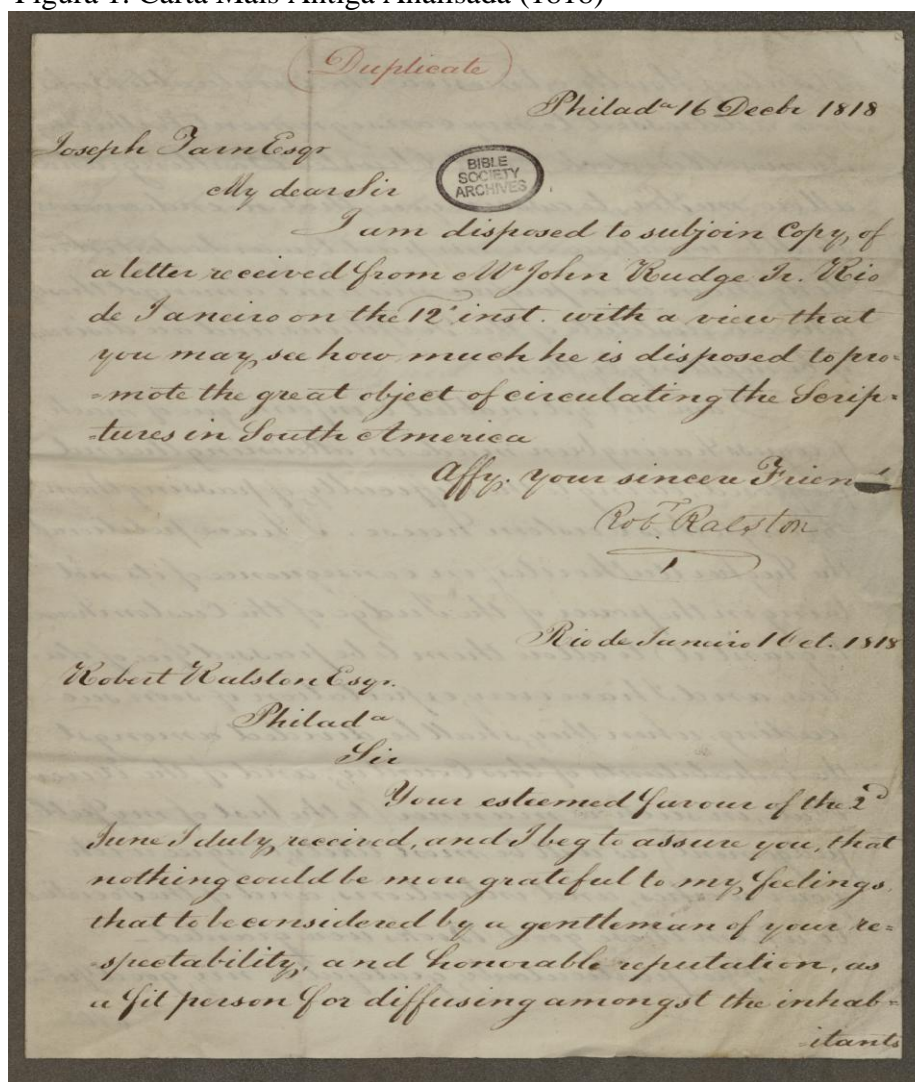 Figura 1: Carta Mais Antiga Analisada (1818)
Duplicate
Philadᵃ 16 Decbr 1818
Joseph Tarn Esqr
BIBLE
SOCIETY
ARCHIVES
My dear Sir
I am disposed to subjoin Copy, of
a letter received from Mʳ John Rudge Jr. Rio
de Janeiro on the 12ᵗ inst. with a view that
you may see how much he is disposed to pro-
=mote the great object of circulating the Scrip-
-tures in South America
Affy. your sincere Friend
Robᵗ Ralston
Rio de Janeiro 1 Oct. 1818
Robert Ralston Esqr.
Philadᵃ
Sir
Your esteemed favour of the 2ᵈ
June I duly received, and I beg to assure you, that
nothing could be more grateful to my feelings,
that to be considered by a gentleman of your re-
-spectability, and honorable reputation, as
a fit person for diffusing amongst the inhab-
-itants